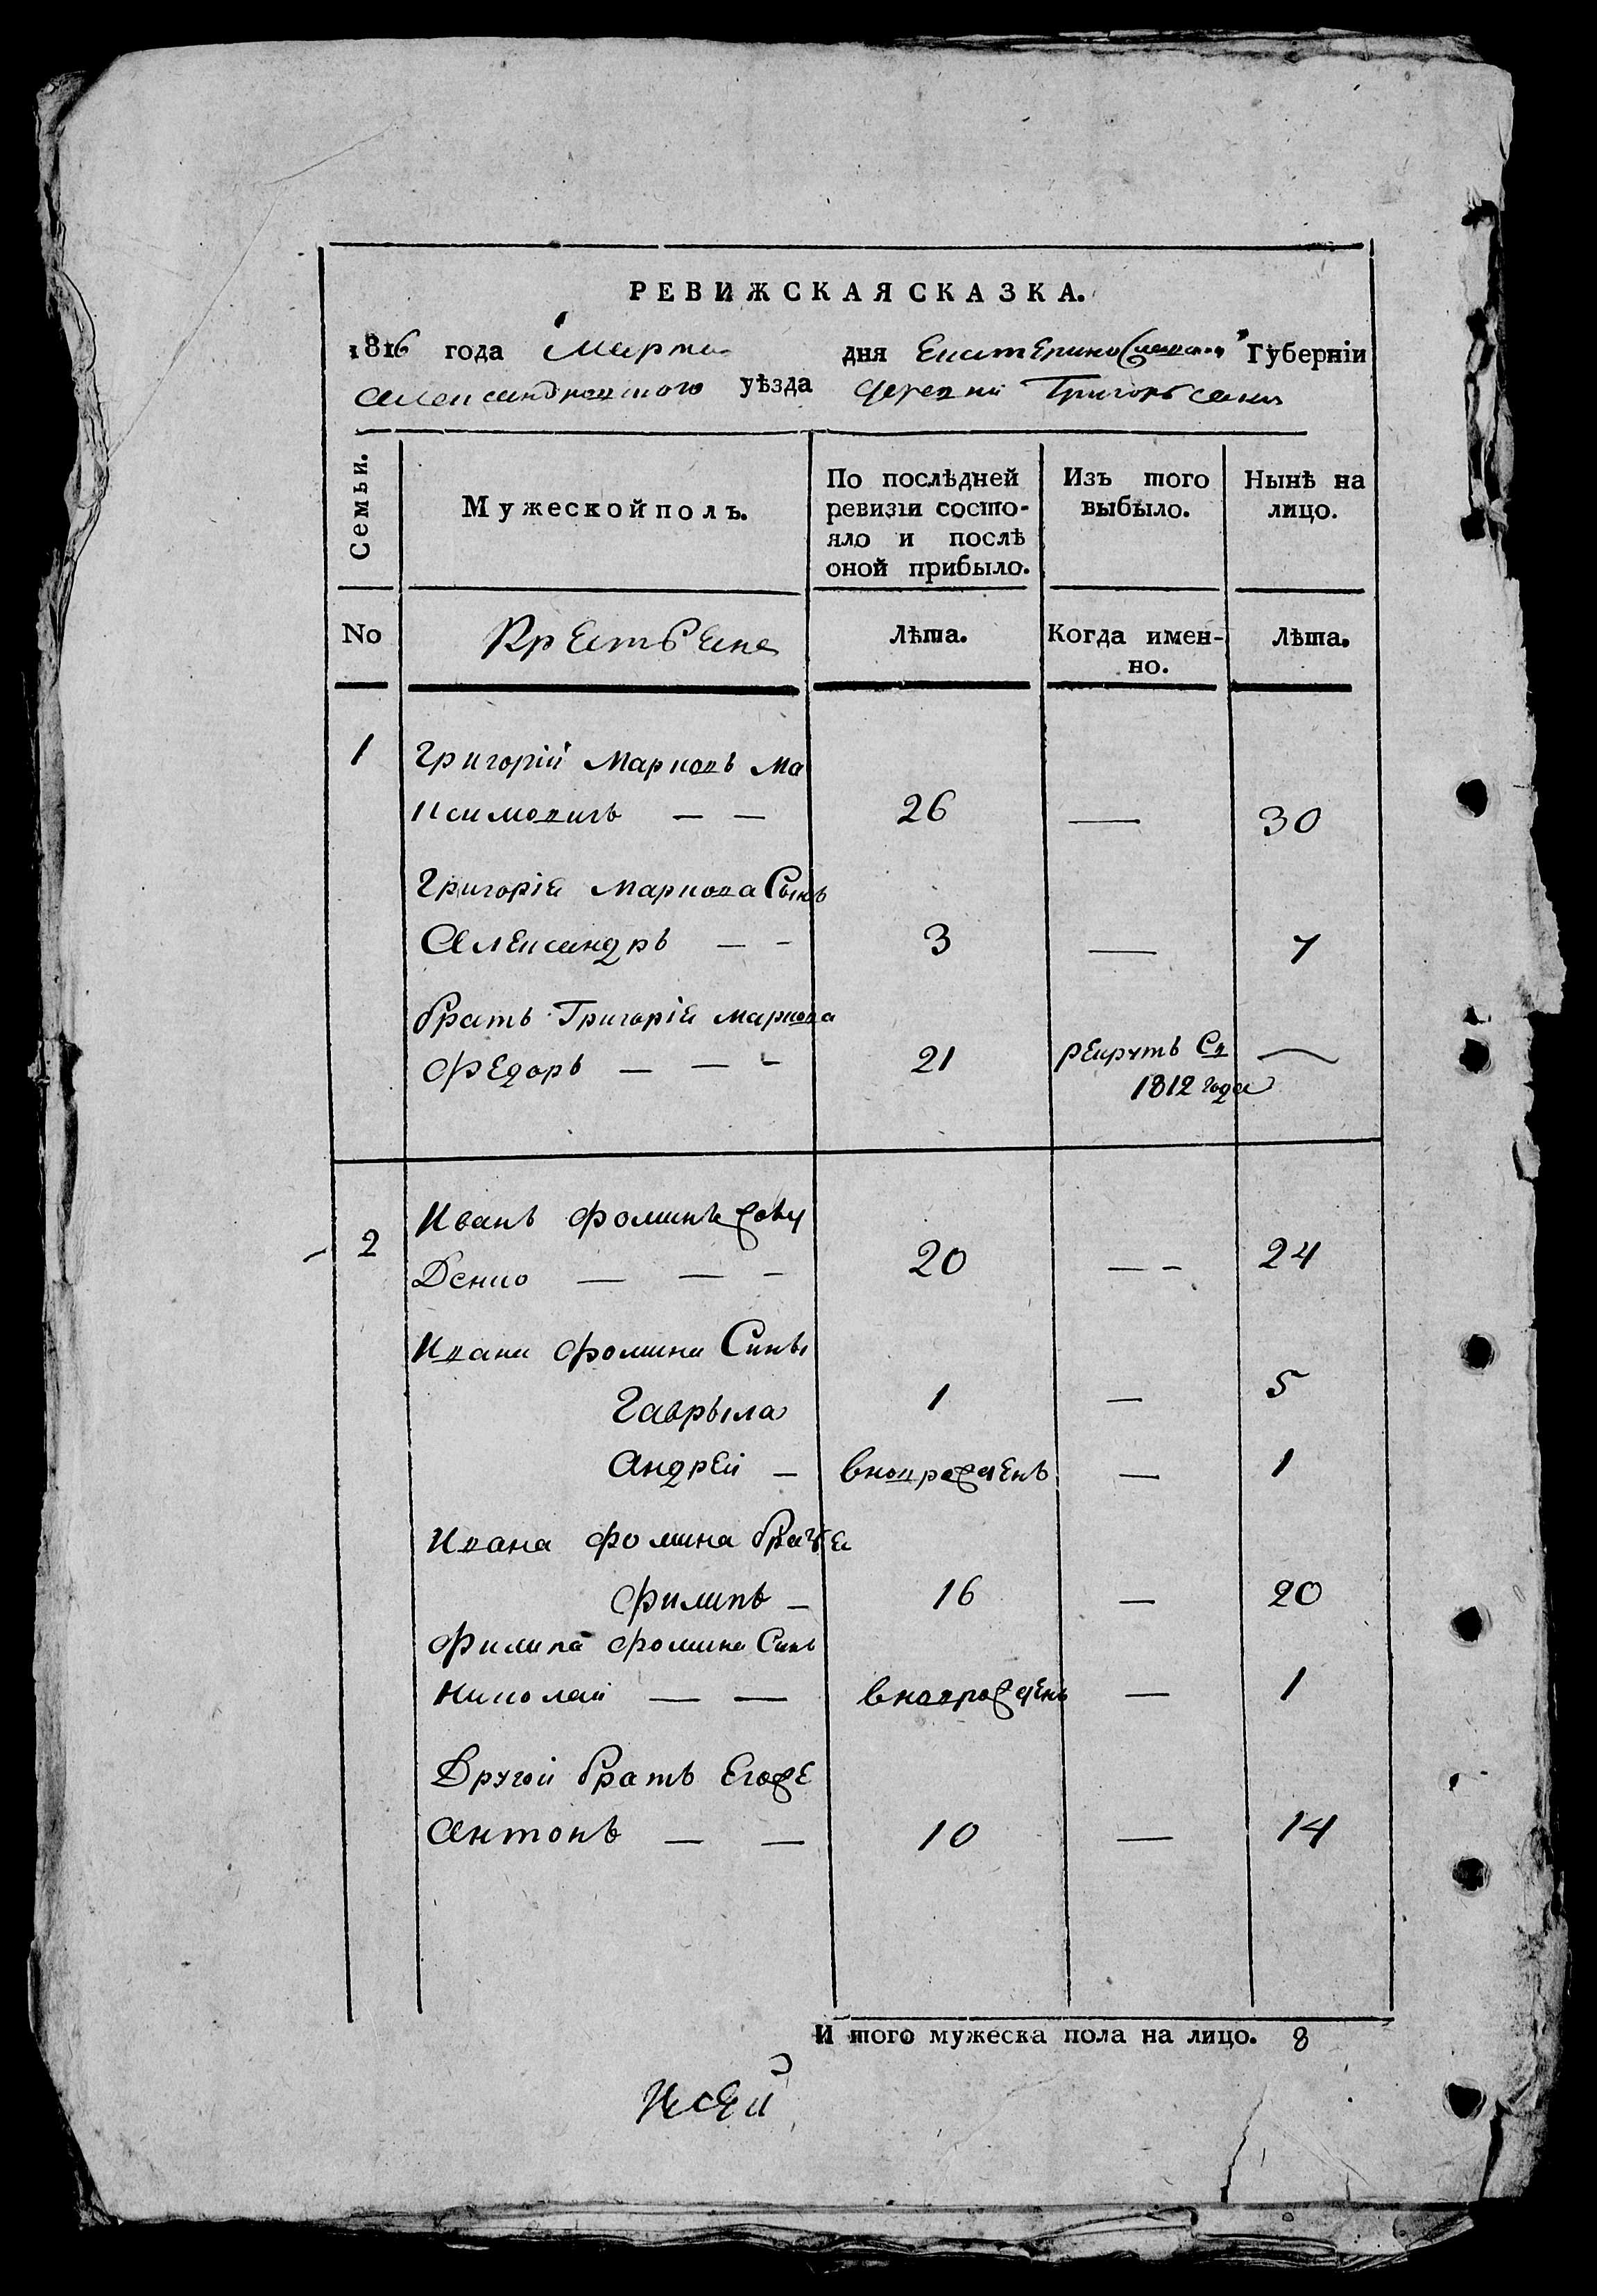 РЕВИЖСКАЯ СКАЗКА.
1816 года Марта дня Екатеринославской Губернiи
Александровского уѣзда деревни Григорьевки
Семьи.
Мужеской полъ.
По послѣдней ревизiи состо-
яло и послѣ
оной прибыло.
Изъ того
выбыло.
Нынѣ на
лицо.
No
Крестьяне
Лѣта.
Когда имен-
но.
Лѣта.
1 Григорiй Марковъ Ма
ксимовичъ — — 26 — 30
Григорiя Маркова Сынъ
Александръ — - 3 — 7
братъ Григорiя Маркова
Федоръ — — - 21 рекрутъ Съ —
1812 года
2 Иванъ Фоминъ
20 — - 24
Ивана Фомина Сины
Гаврыла 1 — 5
Андрей — вноврожденъ — 1
Ивана Фомина братья
Филипъ — 16 — 20
Филипа Фомина Синъ
Николай — — вноврожденъ — 1
Другой братъ Егоже
Антонъ — — 10 — 14
И того мужеска пола на лицо. 8